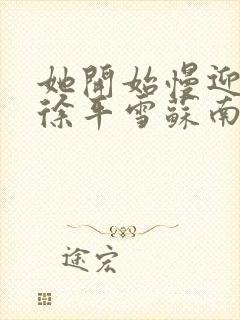 她開始慢迎
徐平雪蘇南
途宏